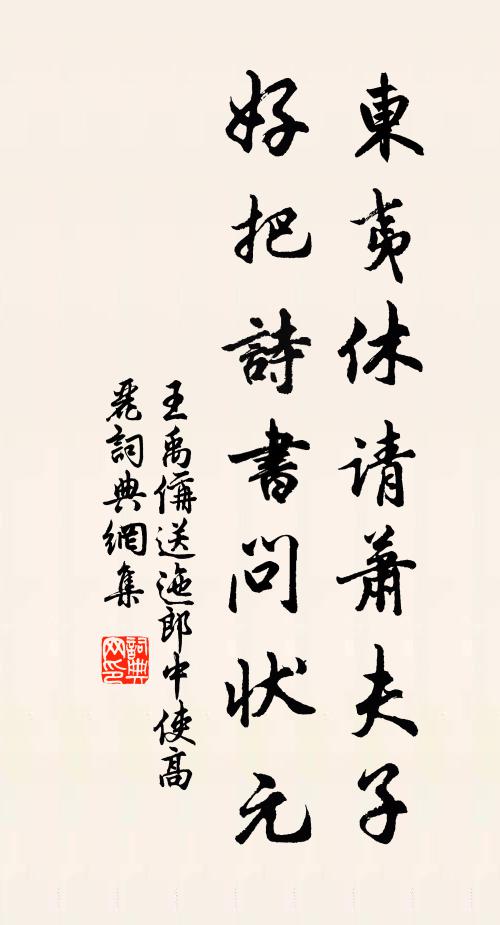 東夷休请蕭夫子
好把詩書問状元
王禹偁送迤郎中使高
麗詞典網集
詞典
网印